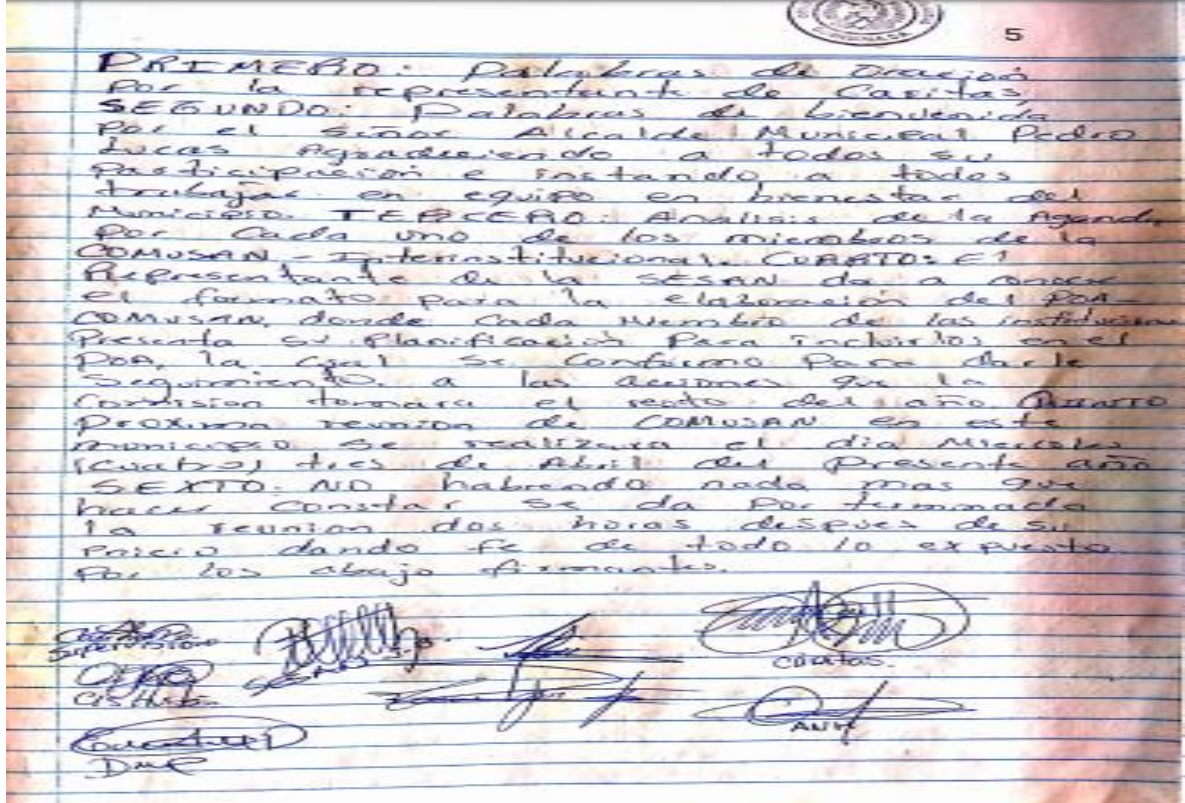 5
PRIMERO: Palabras de Oración
Por la representante de Caritas,
SEGUNDO: Palabras de bienvenida
Por el Señor Alcalde Municipal Pedro
Lucas Agradeciendo a todos su
Participación e instando a todos
trabajar en equipo en bienestar del
Municipio. TERCERO: Analisis de la Agenda
Por Cada uno de los miembros de la
COMUSAN - Interinstitucional. CUARTO: El
Representante de la SESAN da a conocer
el formato para la elaboración del POA-
COMUSAN, donde Cada Miembro de las instituciones
Presenta su Planificación Para incluirlos en el
POA, la cual se Conformo Para darle
Seguimiento a las acciones que la
Comision tomara el resto del año.
Proxima reunion de COMUSAN en este
municipio se realizara el dia Miercoles
(cuatro) tres de Abril del Presente año
SEXTO: NO habiendo nada mas que
hacer Constar se da por terminada
la reunion dos horas despues de su
Inicio dando fe de todo lo expuesto
Por los abajo firmantes.
SUPERVISION
SESAN
Caritas.
DMP